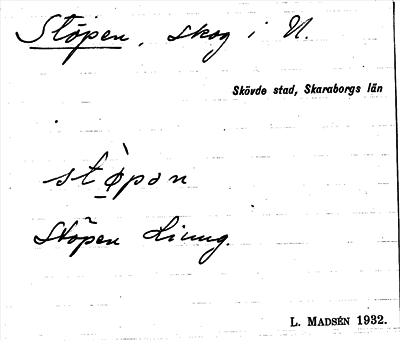 Stöpen, skog i N.
Skövde stad, Skaraborgs län
stø̀pən
Stöpen
L. MADSÉN 1932.